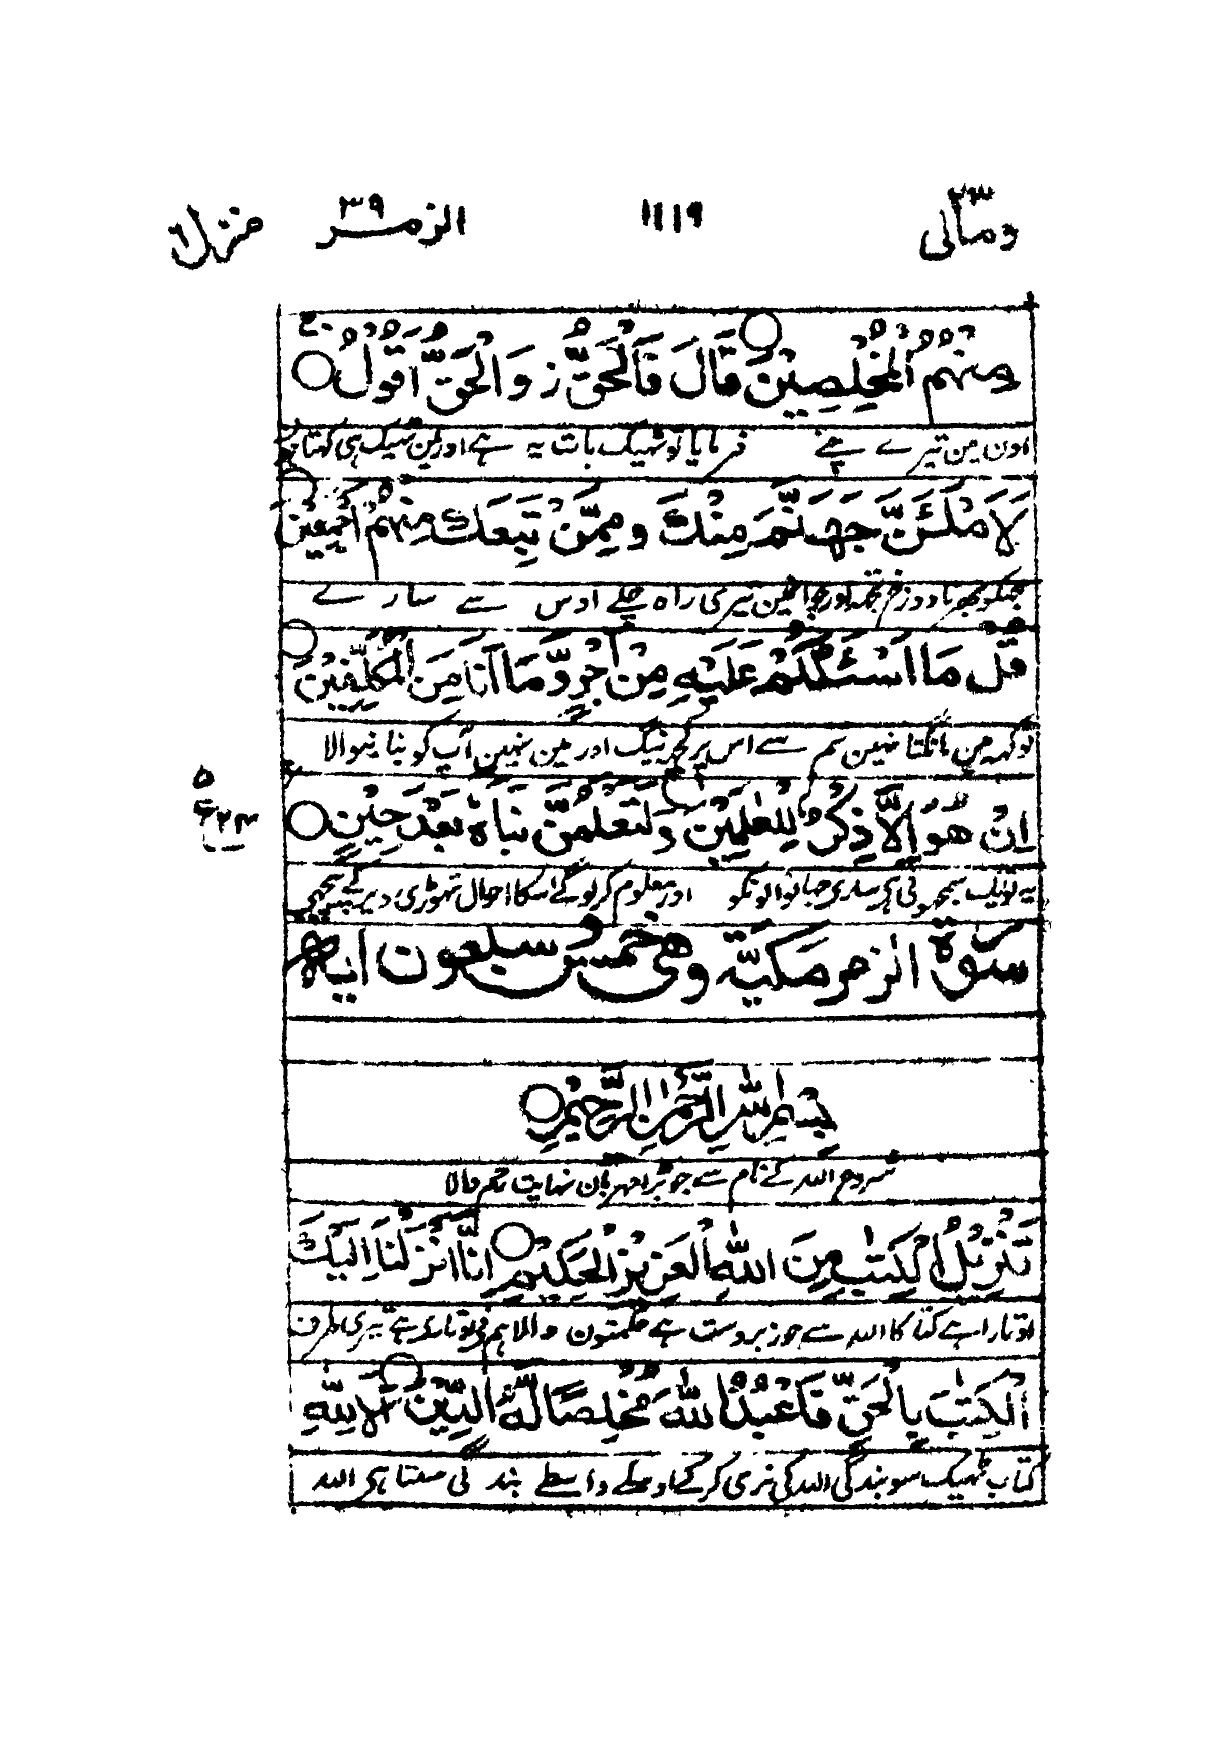 ومالی ٢٣ ١١١٩ الزمر ٣٩ منزل ٦
مِنْهُمُ الْمُخْلِصِيْنَ ○ قَالَ فَالْحَقُّ ز وَالْحَقَّ اَقُوْلُ ○ ج
اون مین تیرے چنے فرمایا تو ٹھیک بات یہ ہے اور مین ٹھیک ہی کہتا
لَاَمْلَـَٔنَّ جَهَنَّمَ مِنْكَ وَمِمَّنْ تَبِعَكَ مِنْهُمْ اَجْمَعِيْنَ ○
مجھکو بھرنا دوزخ تجھ اور جو انمین تیری راہ چلے اون سے سارے
قُلْ مَا اَسْـَٔلُكُمْ عَلَيْهِ مِنْ اَجْرٍ وَّمَا اَنَا مِنَ الْمُتَكَلِّفِيْنَ ○
تو کہہ مین مانگتا نہین تم سے اس پر کچھ نیگ اور مین نہین آپ کو بنانیوالا
اِنْ هُوَ اِلَّا ذِكْرٌ لِلْعٰلَمِيْنَ ○ وَلَتَعْلَمُنَّ نَبَاَهٗ بَعْدَ حِيْنٍ ○
٥ ع ٢٣
یہ تو ایک سمجھوتی ہی سارے جہانوالونکو اور معلوم کر لو گے اسکا احوال تھوڑی دیر کے پیچھے
سورة الزمر مكيّة وهى خمس و سبعون اية
بِسْمِ اللّٰهِ الرَّحْمٰنِ الرَّحِيْمِ ○
شروع اللہ کے نام سے جو بڑا مہربان نہایت رحم والا
تَنْزِيْلُ الْكِتٰبِ مِنَ اللّٰهِ الْعَزِيْزِ الْحَكِيْمِ ○ اِنَّا اَنْزَلْنَا اِلَيْكَ
اوتارا ہے کتاب کا اللہ سے جو زبردست ہے حکمتون والا ہم نی اوتاری ہے تیری طرف
الْكِتٰبَ بِالْحَقِّ فَاعْبُدُ اللّٰهَ مُخْلِصًا لَّهُ الدِّيْنَ ○ اَلَا لِلّٰهِ
کتاب ٹھیک سو بندگی اللہ کی نری کر کے اوسکے واسطے بندگی سنتا ہی اللہ